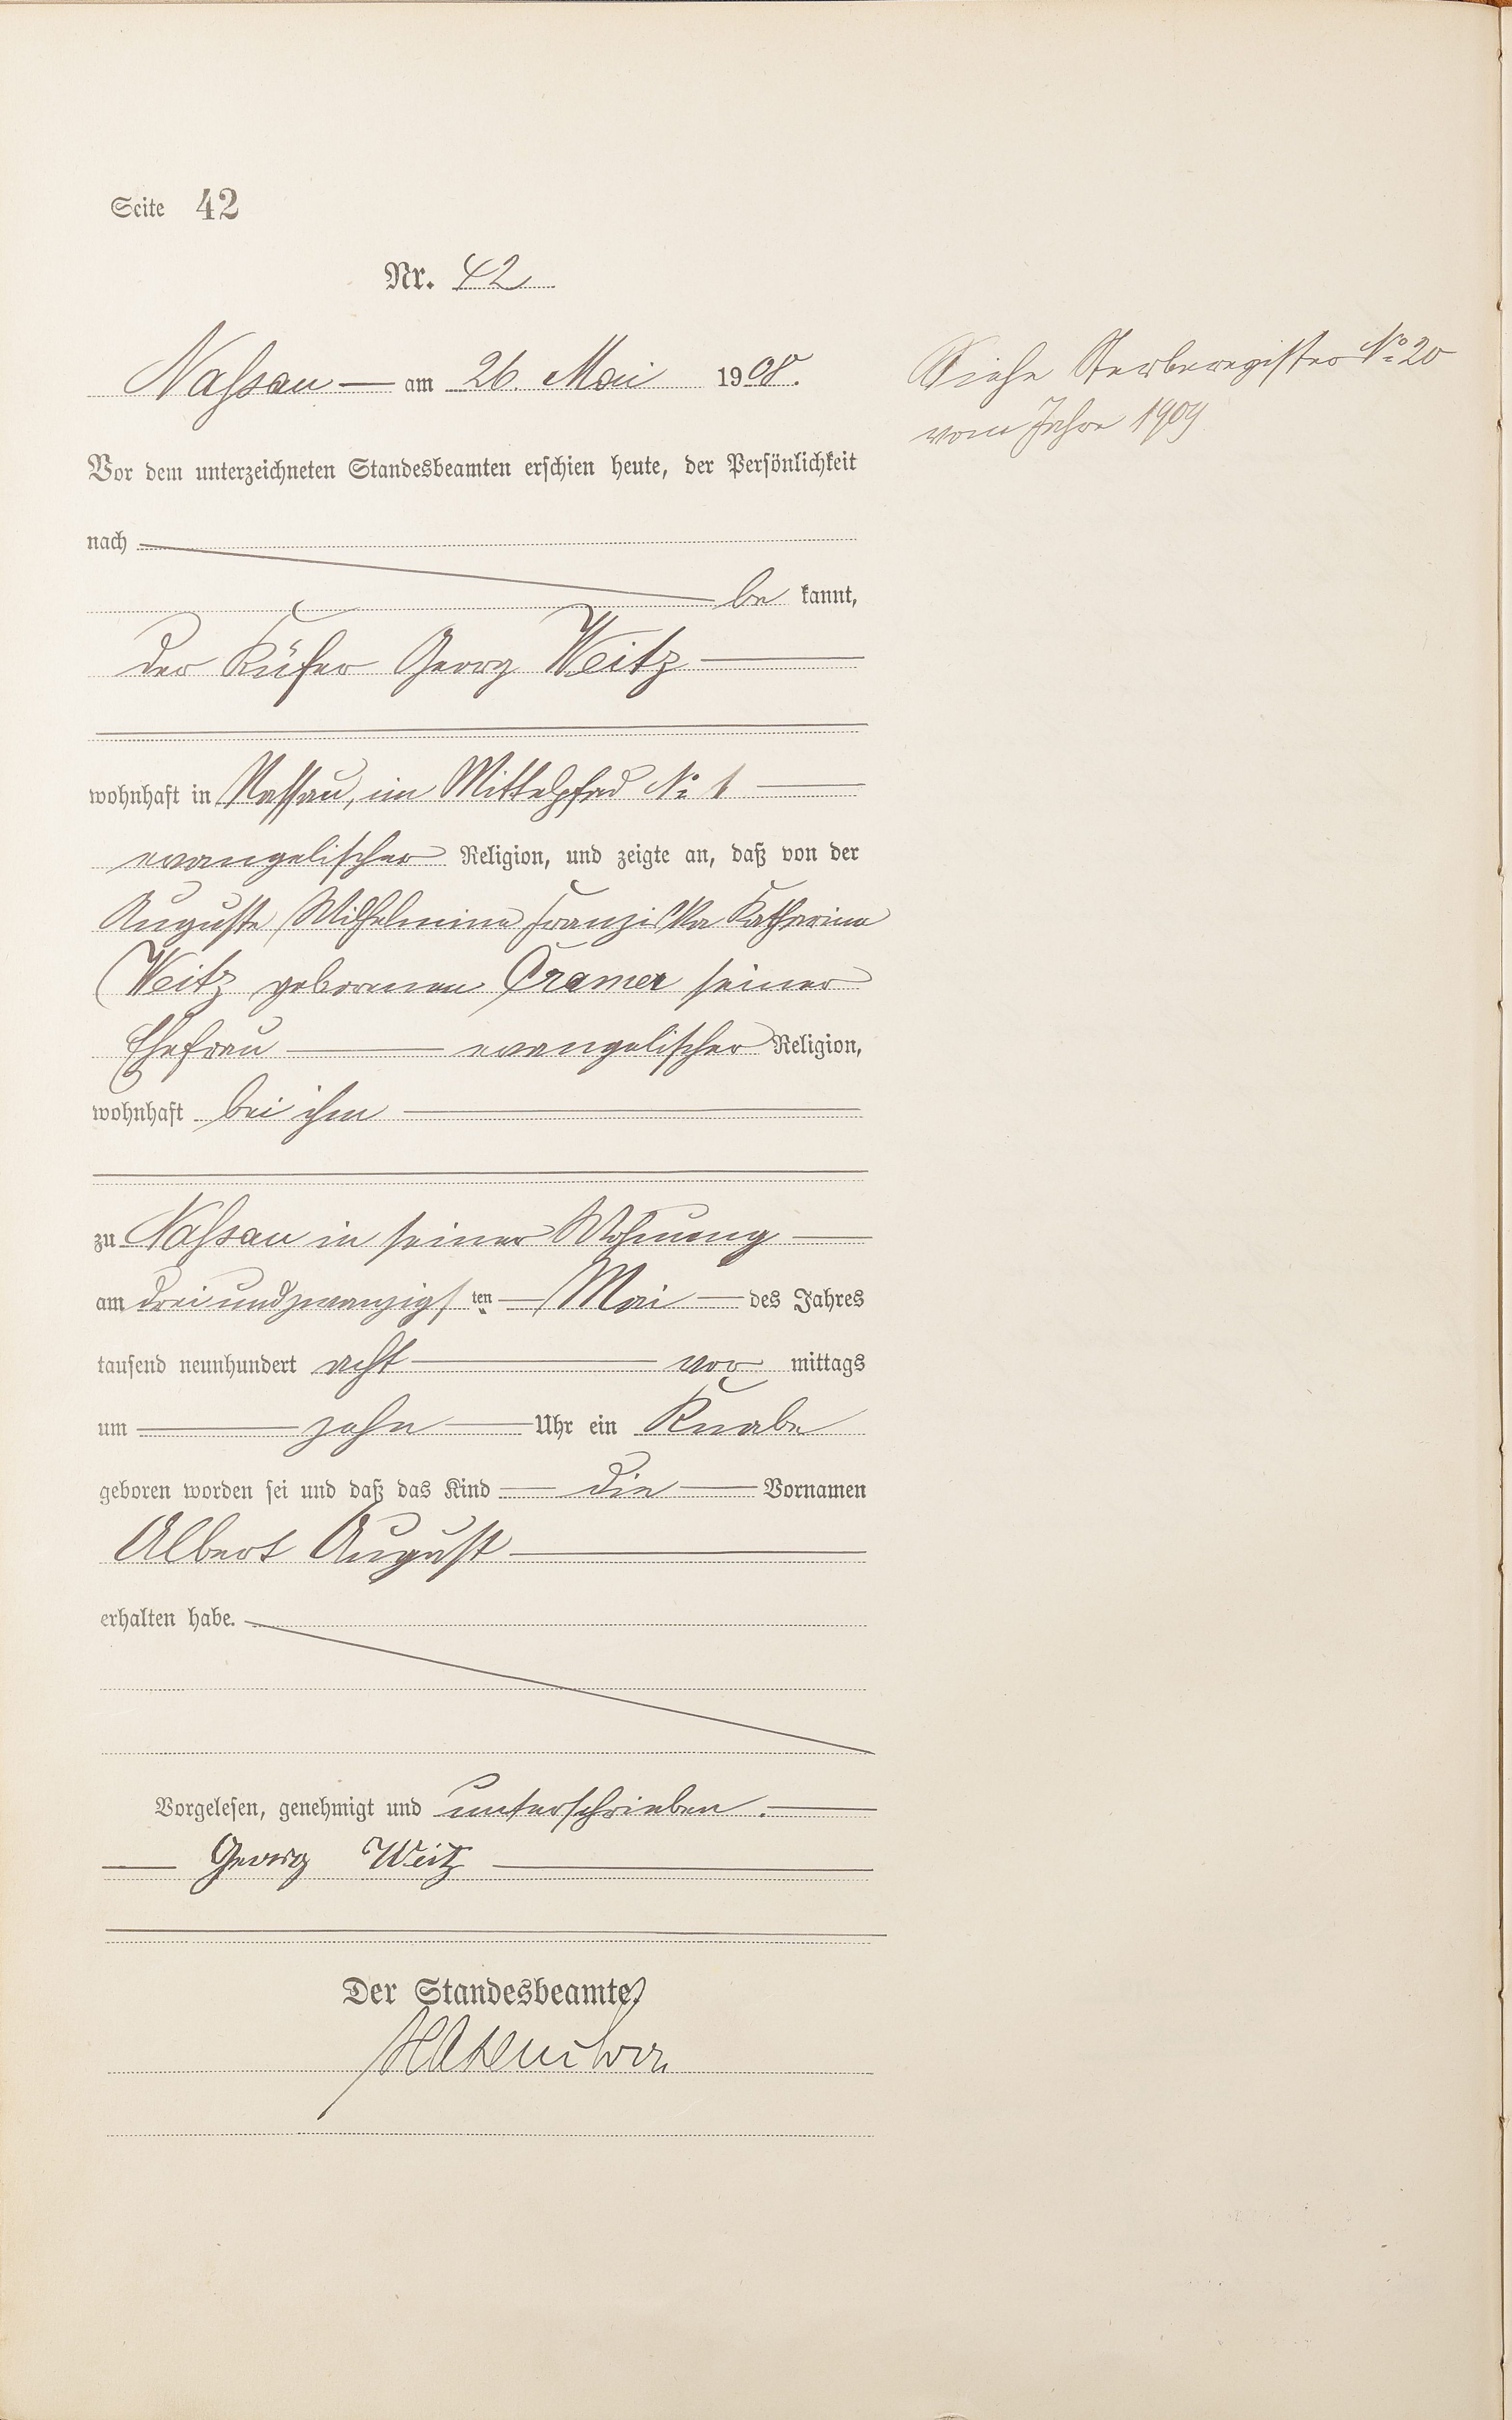 Seite 42
Nr. 42
Nassau — am 26. Mai 1908.
Siehe Sterberegister No 20
vom Jahre 1909
Vor dem unterzeichneten Standesbeamten erschien heute, der Persönlichkeit
nach
be kannt,
der Küfer Georg Weitz
wohnhaft in Nassau, im Mittelpfad No 1
evangelischer Religion, und zeigte an, daß von der
Auguste Wilhelmine Franziska Katharina
Weitz geborenen Cramer seiner
Ehefrau evangelischer Religion,
wohnhaft bei ihm
zu Nassau in seiner Wohnung
am drei und zwanzigsten Mai des Jahres
tausend neunhundert acht vor mittags
um zehn Uhr ein Knabe
geboren worden sei und daß das Kind die Vornamen
Albert August
erhalten habe.
Vorgelesen, genehmigt und unterschrieben.
Georg Weitz
Der Standesbeamte.